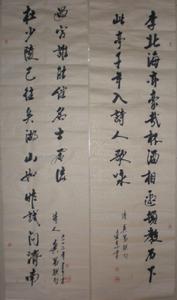 李北海亦豪哉杯酒相邀頓教历下
此亭千年入詩人歌咏
杜少陵已往矣湖山如昨試問濟南
過客誰能繼名士風流